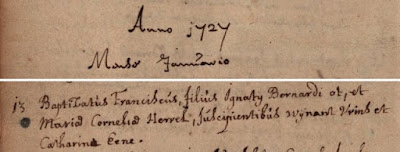 Anno 1727
Mense Januario
13 Baptisatus Franciscus, filius Ignatij Bernardi ot, et
Maria Cornelia Herrel, suscipientibus wijnant Vrins et
Catharina Eene.